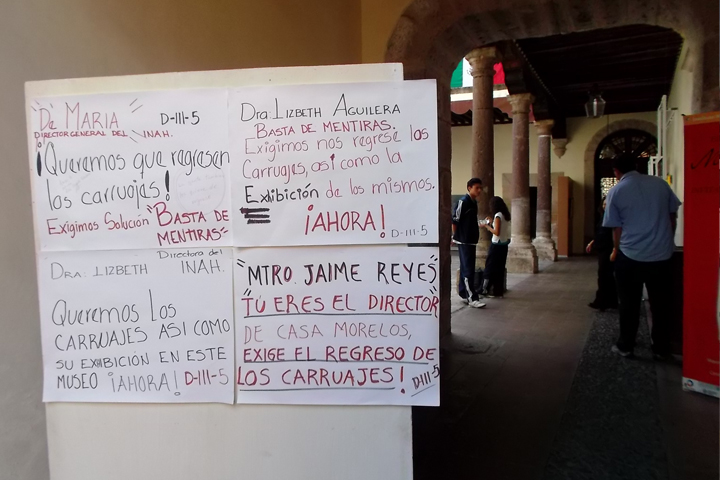 "De MARIA" D-III-5
DIRECTOR GENERAL DEL INAH.
¡Queremos que regresen
las carruojas!
Exigimos Solución "BASTA DE
MENTIRAS"
Dra. LIZBETH AGUILERA
BASTA DE MENTIRAS.
Exigimos nos regrese los
Carruajes, así como la
Exhibición de los mismos.
¡AHORA! D-III-5
Directora del
DRA. LIZBETH INAH.
Queremos Los
CARRUAJES ASI COMO
SU EXHIBICIÓN EN ESTE
MUSEO ¡AHORA! D-III-5
"MTRO. JAIME REYES"
TÚ ERES EL DIRECTOR
DE CASA MORELOS,
EXIGE EL REGRESO DE
LOS CARRUAJES! D-III-5